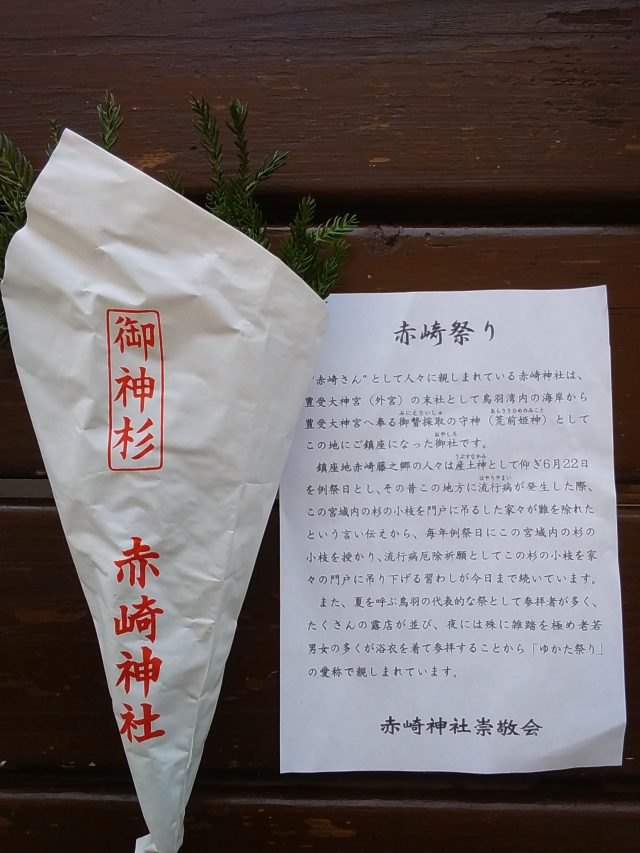 御神杉
赤崎神社
赤崎祭り
"赤崎さん"として人々に親しまれている赤崎神社は、
豊受大神宮（外宮）の末社として鳥羽湾内の海岸から
みにえさいしゅ
あらさきひめのみこと
豊受大神宮へ奉る御贄採取の守神（荒前姫神）として
おやしろ
この地にご鎮座になった御社です。
うぶすなかみ
鎮座地赤崎藤之郷の人々は産土神として仰ぎ6月22日
はやりやまい
を例祭日とし、その昔この地方に流行病が発生した際、
この宮域内の杉の小枝を門戸に吊るした家々が難を除れた
という言い伝えから、毎年例祭日にこの宮域内の杉の
小枝を授かり、流行病厄除祈願としてこの杉の小枝を家
々の門戸に吊り下げる習わしが今日まで続いています。
また、夏を呼ぶ鳥羽の代表的な祭として参拝者が多く、
たくさんの露店が並び、夜には殊に雑踏を極め老若
男女の多くが浴衣を着て参拝することから「ゆかた祭り」
の愛称で親しまれています。
赤崎神社崇敬会